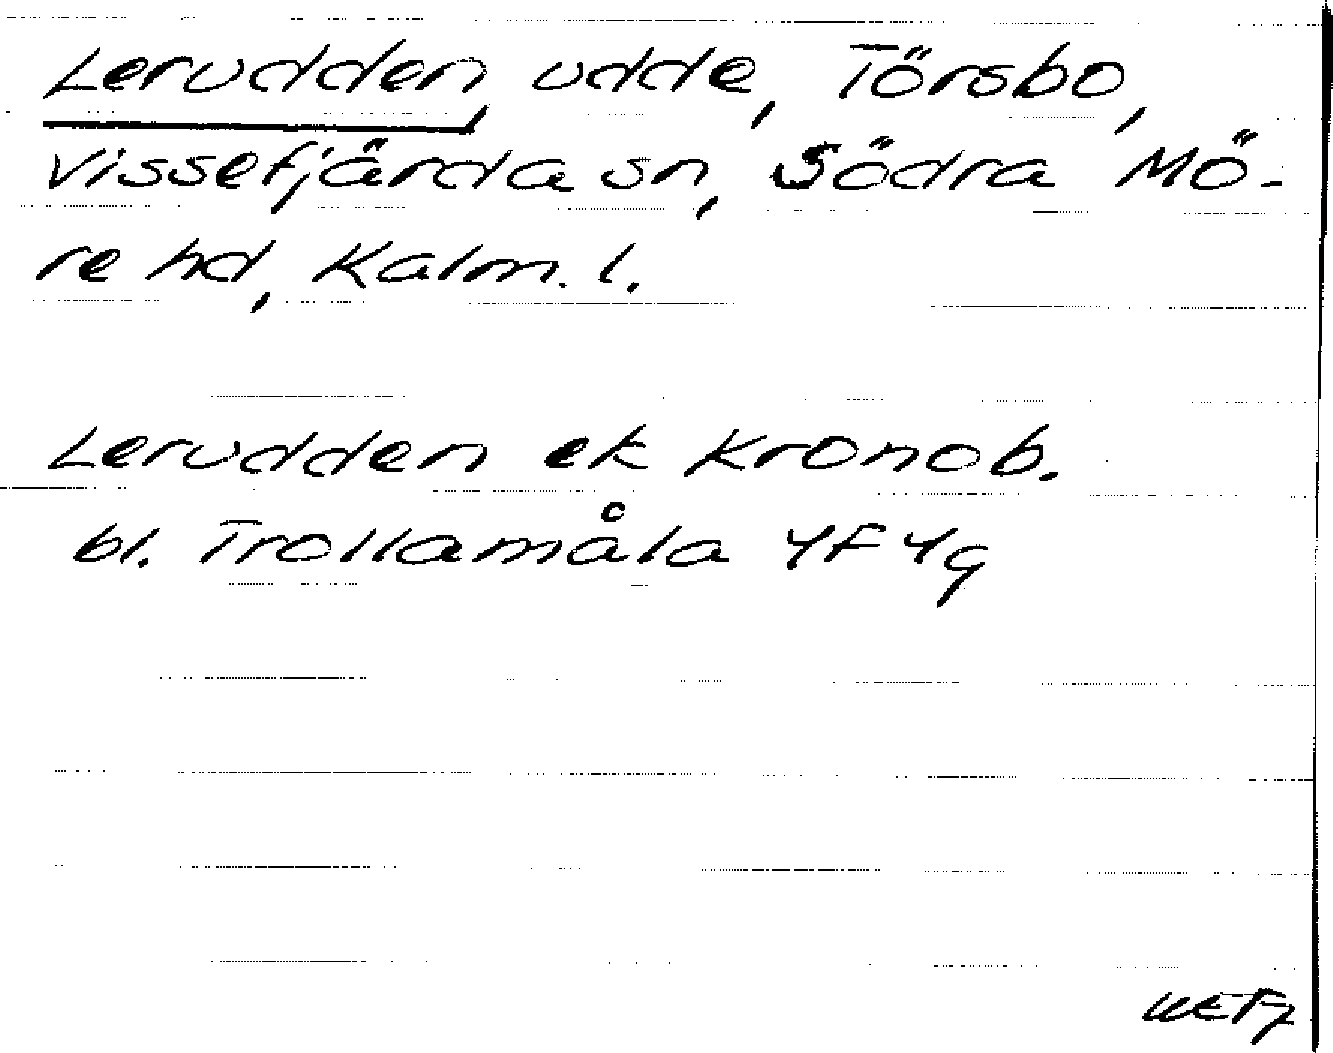 Lerudden, udde, Törsbo,
Vissefjärda sn, Södra Mö-
re hd, Kalm. l.
Lerudden ek Kronob.
bl. Trollamåla 4F4g